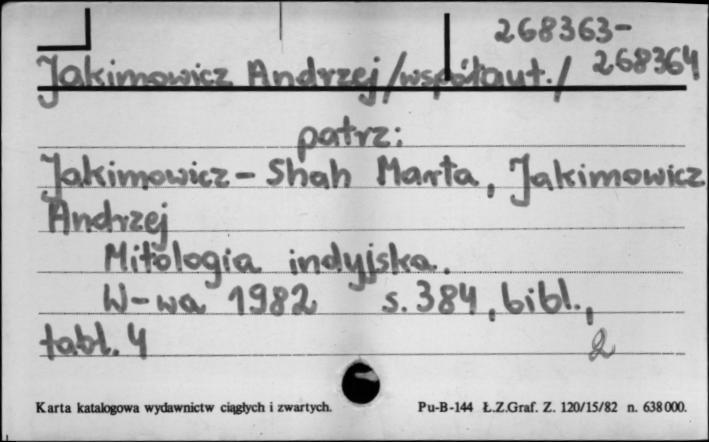 268363-
Jakimowicz Andrzej /współaut./ 268364
patrz:
Jakimowicz - Shah Marta, Jakimowicz
Andrzej
Mitologia indyjska.
W-wa 1982 s. 384, bibl.,
tabl. 4
2
Karta katalogowa wydawnictw ciągłych i zwartych. Pu-B-144 Ł.Z.Graf. Z. 120/15/82 n. 638000.